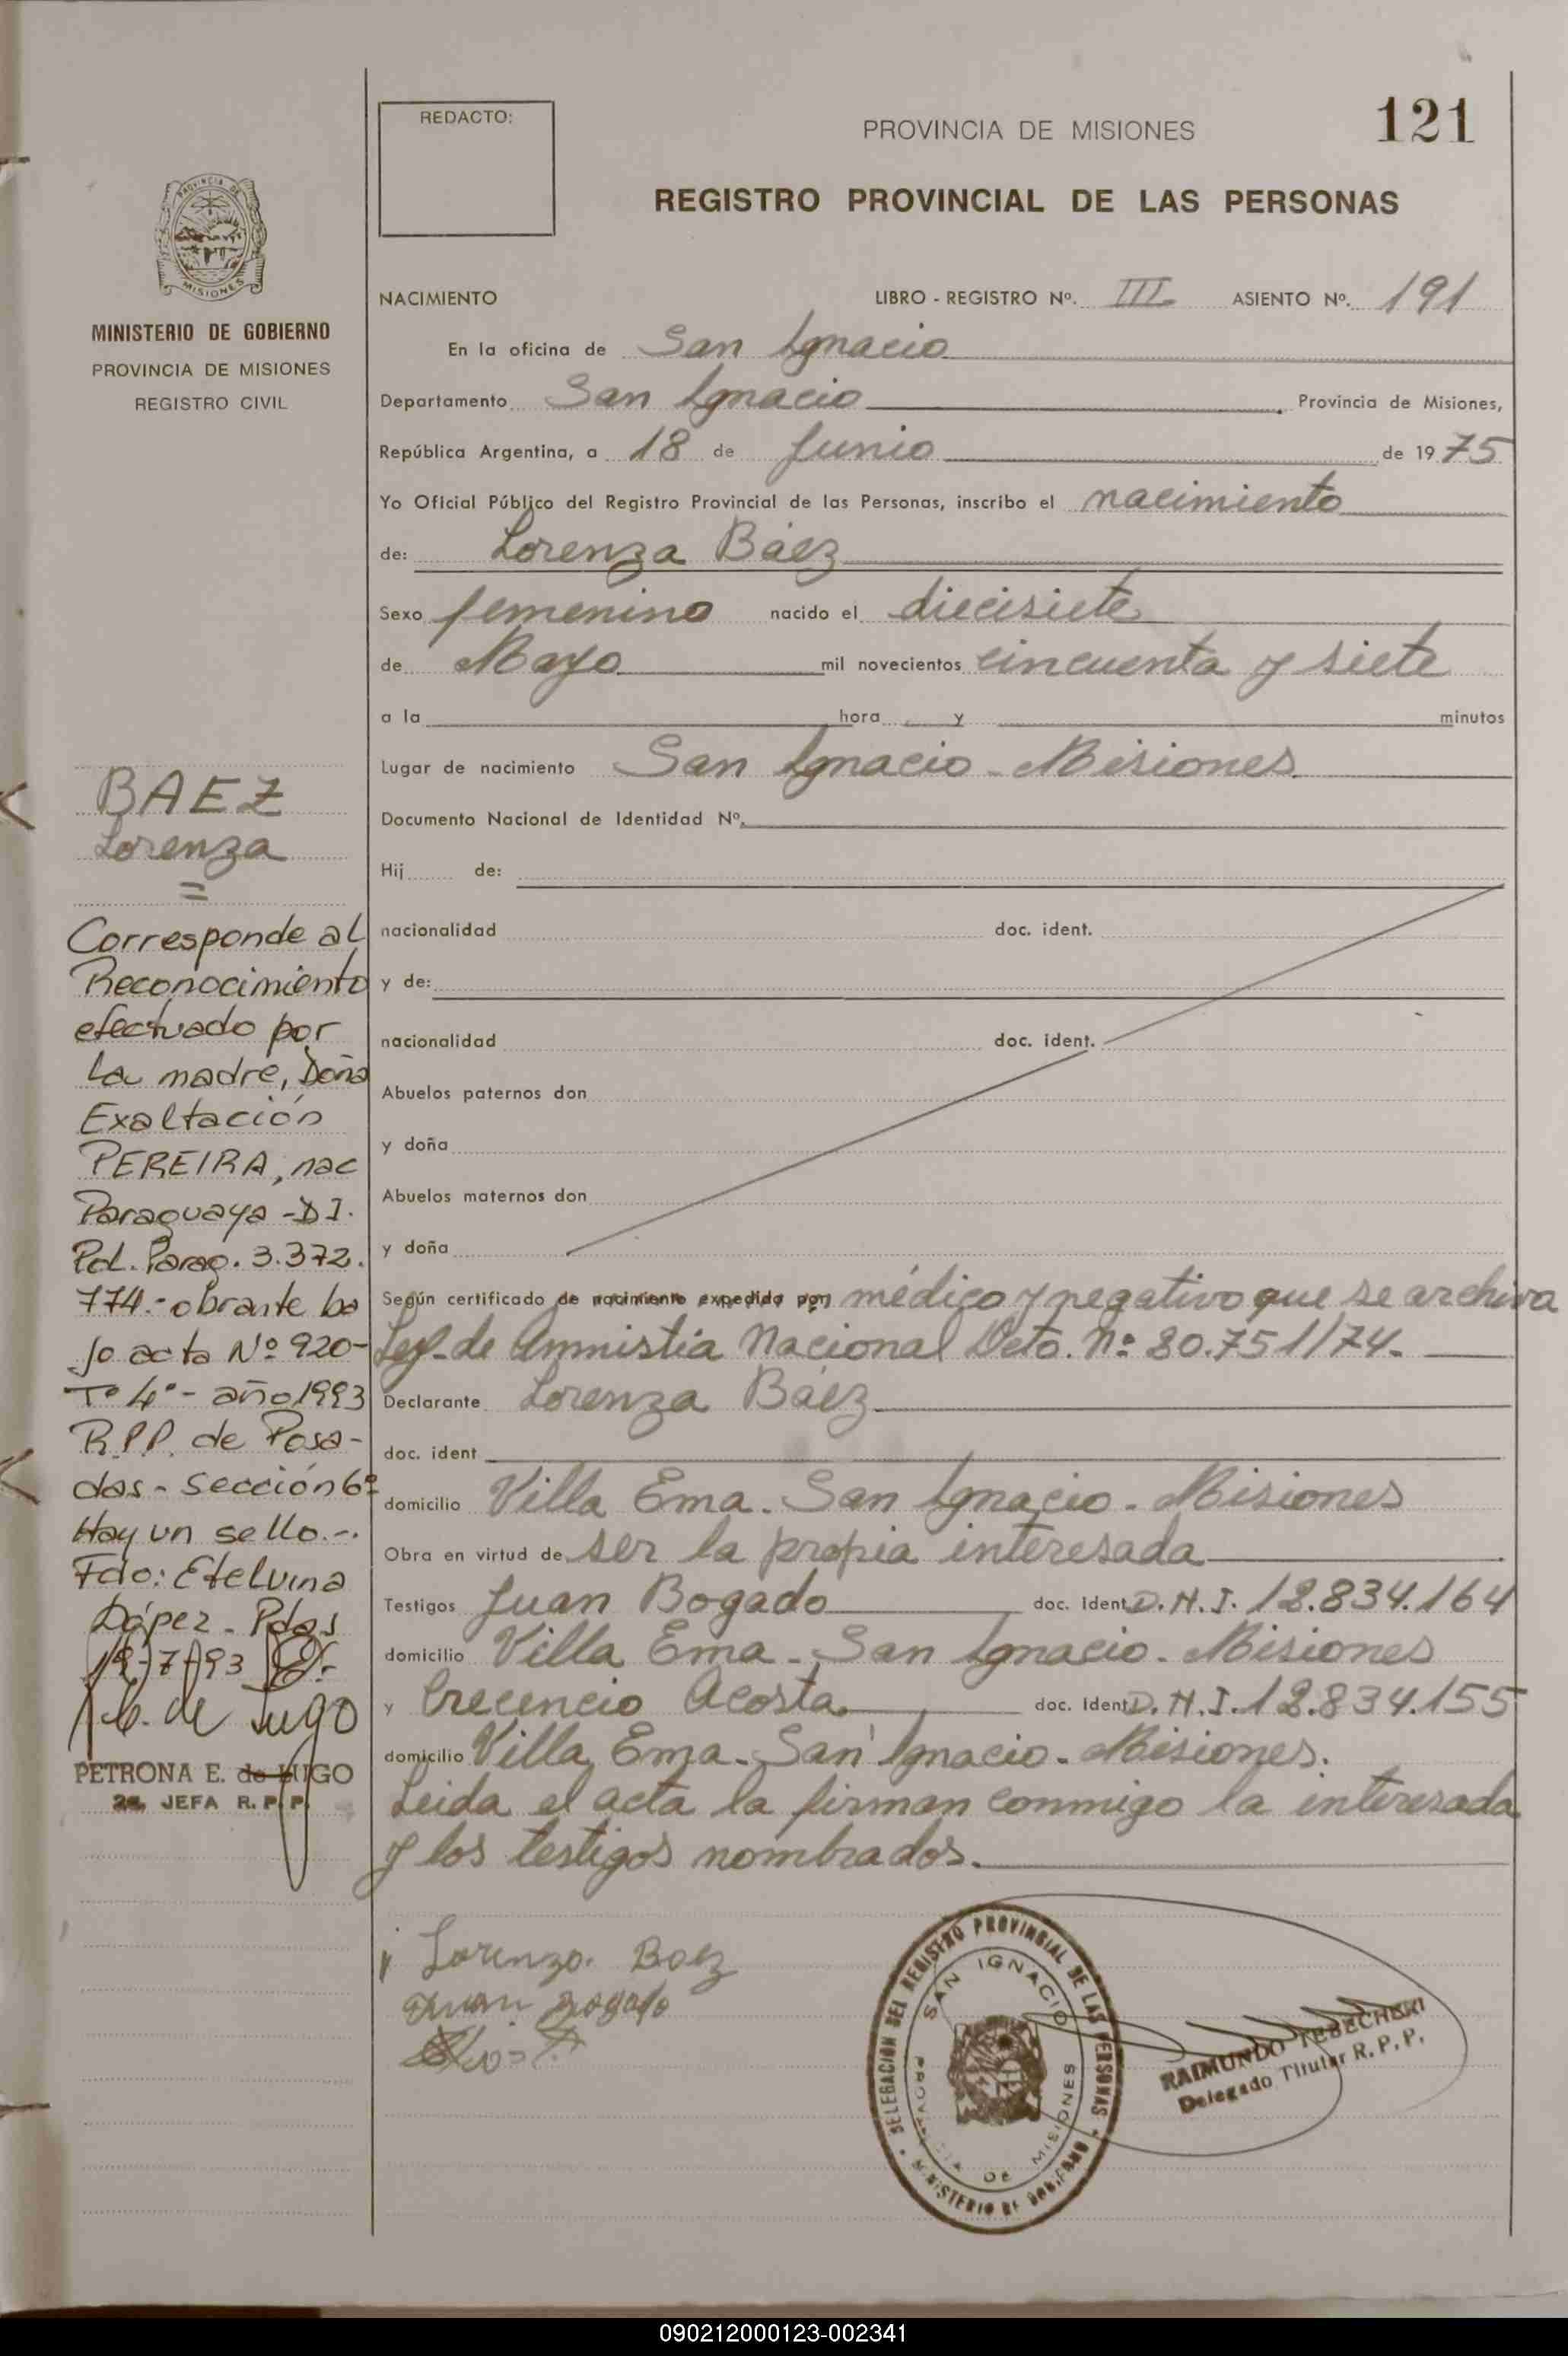 REDACTO:
PROVINCIA DE MISIONES
121
REGISTRO PROVINCIAL DE LAS PERSONAS
PROVINCIA DE
MISIONES
MINISTERIO DE GOBIERNO
PROVINCIA DE MISIONES
REGISTRO CIVIL
NACIMIENTO LIBRO - REGISTRO Nº. III ASIENTO Nº. 191
En la oficina de San Ignacio
Departamento San Ignacio Provincia de Misiones,
República Argentina, a 18 de Junio de 1975
Yo Oficial Público del Registro Provincial de las Personas, inscribo el nacimiento
de: Lorenza Báez
Sexo femenino nacido el diecisiete
de Mayo mil novecientos cincuenta y siete
a la hora y minutos
Lugar de nacimiento San Ignacio - Misiones
Documento Nacional de Identidad Nº.
Hij de:
nacionalidad doc. ident.
y de:
nacionalidad doc. ident.
Abuelos paternos don
y doña
Abuelos maternos don
y doña
Según certificado de nacimiento expedido por médico y negativo que se archiva
Ley de Amnistia Nacional Deto. Nº 80.751/74.
Declarante Lorenza Báez
doc. ident
domicilio Villa Ema. San Ignacio. Misiones
Obra en virtud de ser la propia interesada
Testigos Juan Bogado doc. ident D.N.I. 12.834.164
domicilio Villa Ema - San Ignacio. Misiones
y Crecencio Acosta doc. ident D.N.I. 12.834.155
domicilio Villa Ema - San Ignacio - Misiones.
Leida el acta la firman conmigo la interesada
y los testigos nombrados.
BAEZ
Lorenza
=
Corresponde al
Reconocimiento
efectuado por
La madre, Doña
Exaltación
PEREIRA, nac
Paraguaya - D I.
Pol. Parag. 3.372.
774.- obrante ba
jo acta Nº 920-
Tº 4º - año 1993
R.P.P. de Posa-
das - Sección 6º
Hay un sello.-.
Fdo: Etelvina
López - Pdas
19-7-93
de Lugo
PETRONA E. de LUGO
2a. JEFA R.P.P.
Lorenza Baez
Juan Bogado
DELEGACION DEL REGISTRO PROVINCIAL DE LAS PERSONAS
SAN IGNACIO
PROVINCIA DE MISIONES
MINISTERIO DE GOBIERNO
RAIMUNDO TEBECHERI
Delegado Titular R.P.P.
090212000123-002341